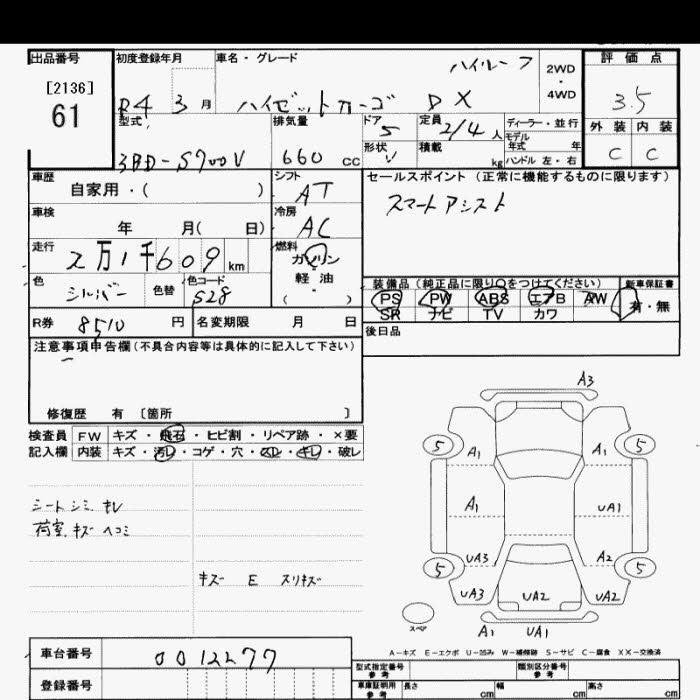 出品番号
[2136]
61
初度登録年月
R4 3 月
車名・グレード
ハイルーフ
ハイゼットカーゴ DX
2WD
・
4WD
評価点
3.5
外装 内装
C C
型式
3BD-S700V
排気量
660 cc
ドア
5
形状
V
定員
2/4 人
積載
kg
ディーラー・並行
モデル
年式 年
ハンドル 左・右
車歴
自家用・( )
シフト
AT
車検
年 月( 日)
冷房
AC
走行
2万1千609 km
燃料
ガソリン
軽油
( )
色
シルバー
色替
色コード
S28
R券 8510 円
名変期限 月 日
セールスポイント (正常に機能するものに限ります)
スマートアシスト
装備品 (純正品に限り○をつけてください)
新車保証書
PS PW ABS エアB AW
SR ナビ TV カワ
有・無
後日品
注意事項申告欄 (不具合内容等は具体的に記入して下さい)
修復歴 有 〔箇所 〕
検査員 FW キズ・飛石・ヒビ割・リペア跡・×要
記入欄 内装 キズ・汚レ・コゲ・穴・スレ・キレ・破レ
シートシミ キレ
荷室 キズ ヘコミ
キズ E スリキズ
A3
5 A1 A1 5
A1 UA1
5 UA3 A2 5
UA3 UA2 UA2
スペア
A1 UA1
A-キズ E-エクボ U-凹み W-補修跡 S-サビ C-腐食 XX-交換済
車台番号 0012277
登録番号
型式指定番号
参考
類別区分番号
参考
車庫証明用
参考
長さ cm
幅 cm
高さ cm